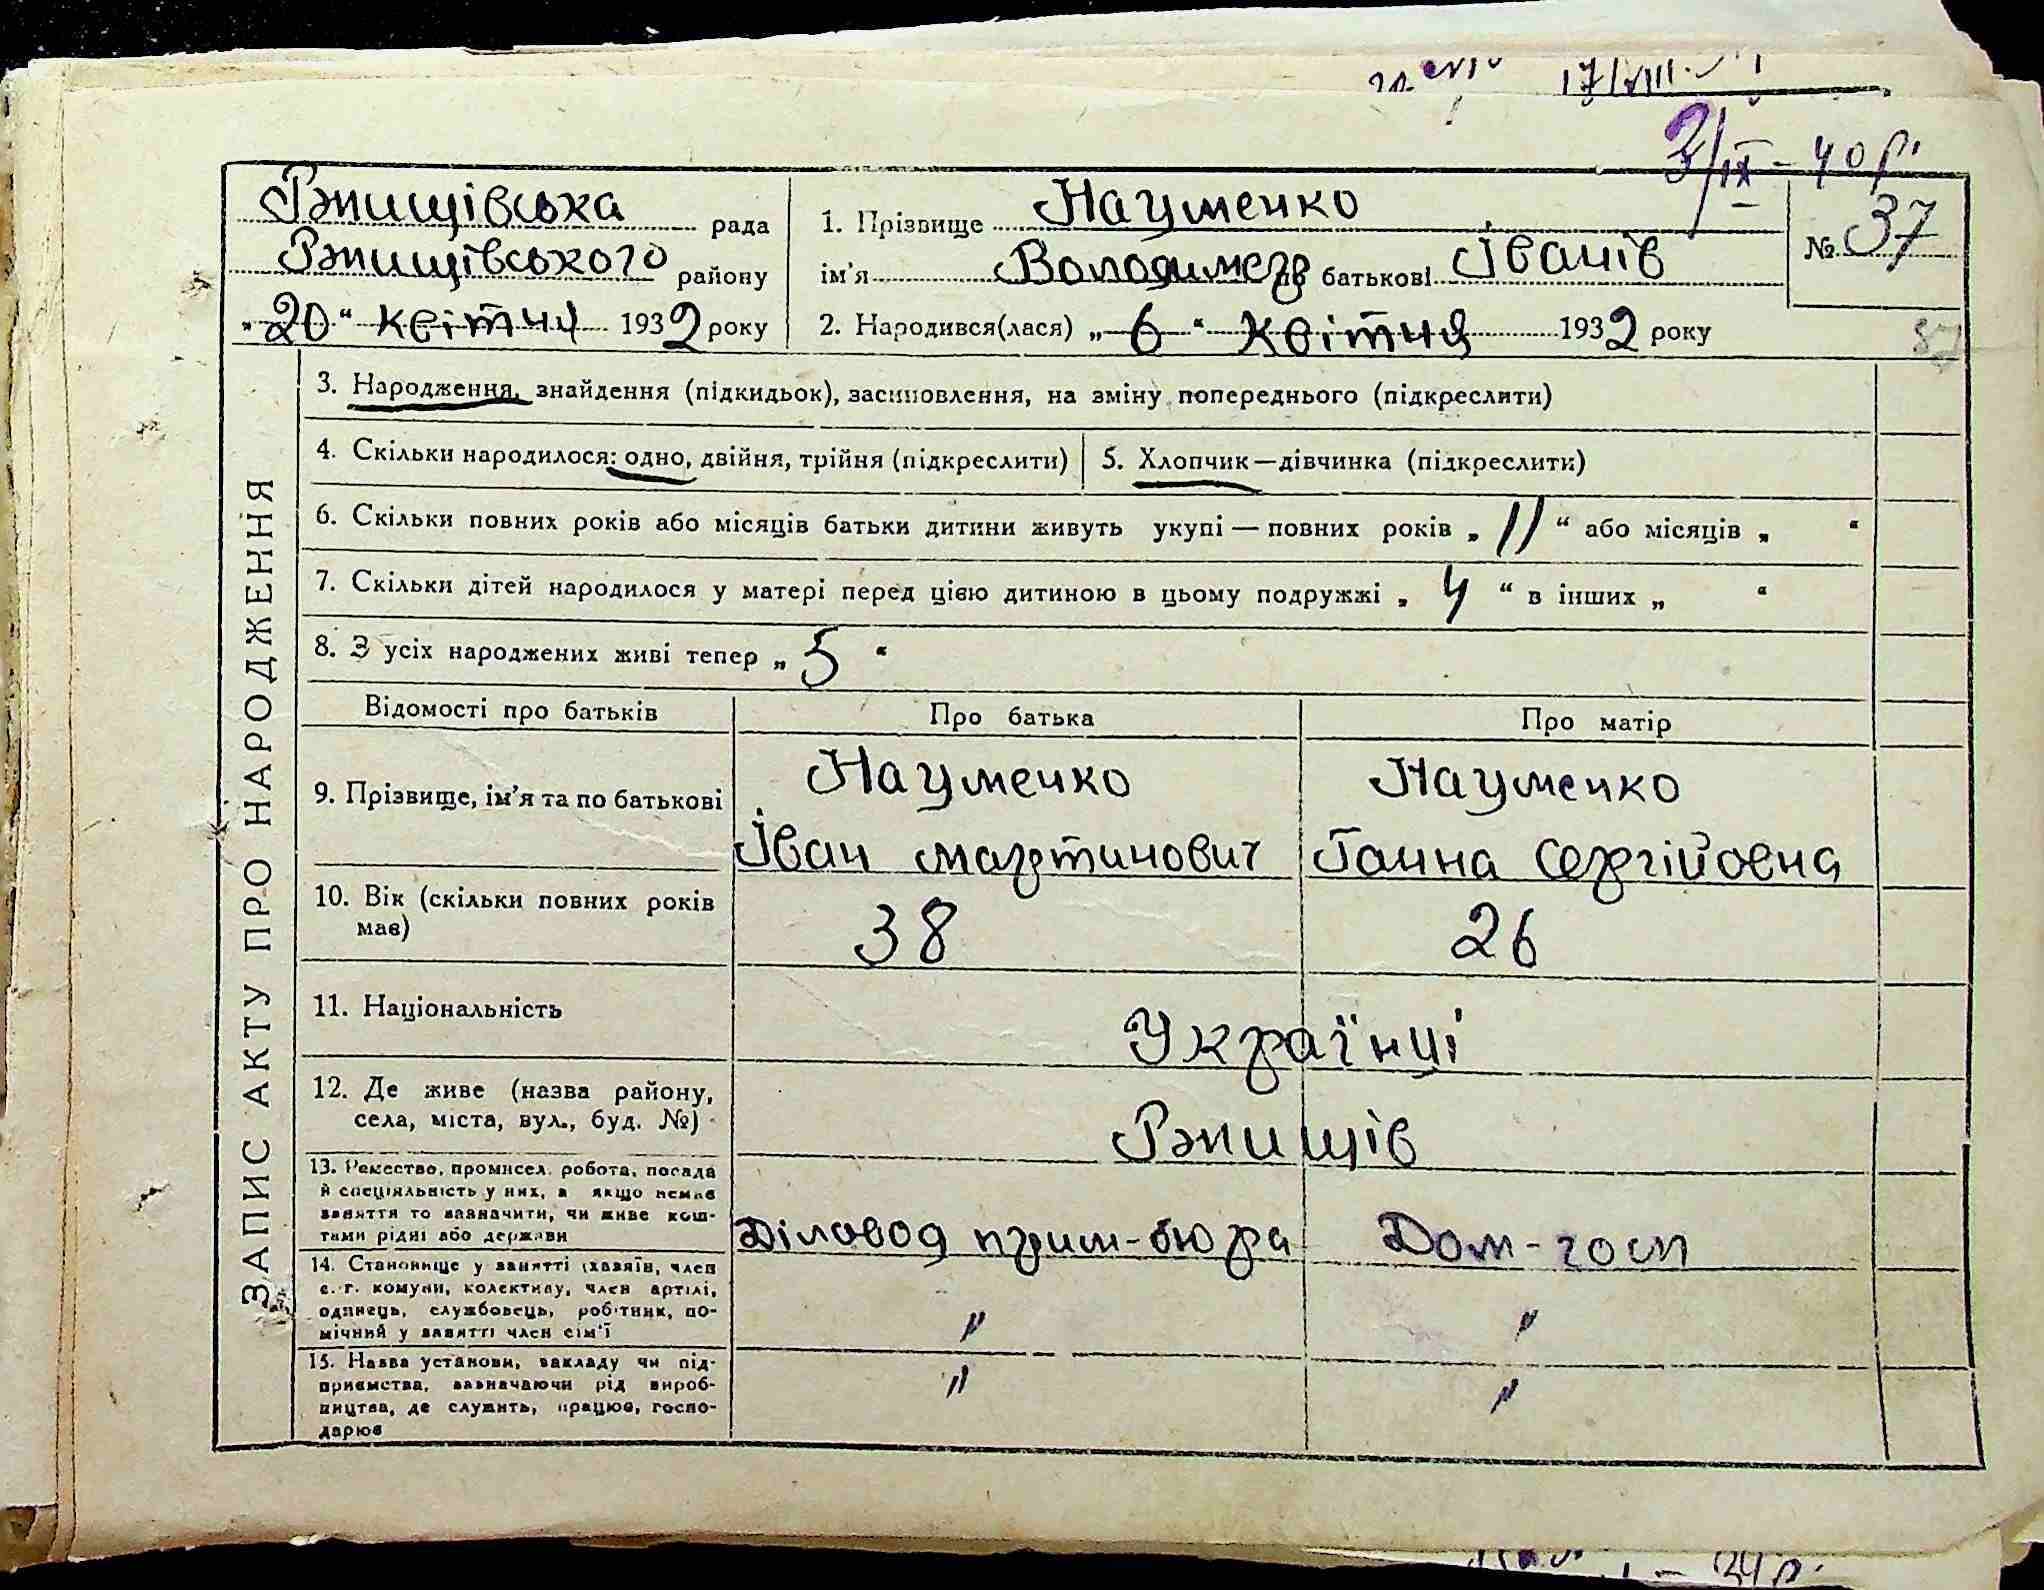 17/VIII
3/IX - 40 р.
Ржищівська рада
Ржищівського району
„20“ квітня 1932 року
1. Прізвище Науменко
ім'я Володимер по батькові Іванів
2. Народився(лася) „6“ квітня 1932 року
№ 37
ЗАПИС АКТУ ПРО НАРОДЖЕННЯ
3. Народження, знайдення (підкидьок), засиновлення, на зміну попереднього (підкреслити)
4. Скільки народилося: одно, двійня, трійня (підкреслити)
5. Хлопчик—дівчинка (підкреслити)
6. Скільки повних років або місяців батьки дитини живуть укупі — повних років „ 11 “ або місяців „ “
7. Скільки дітей народилося у матері перед цією дитиною в цьому подружжі „ 4 “ в інших „ “
8. З усіх народжених живі тепер „ 5 “
Відомості про батьків
Про батька
Про матір
9. Прізвище, ім'я та по батькові
Науменко
Іван мартинович
Науменко
Ганна Сергійовна
10. Вік (скільки повних років
має)
38
26
11. Національність
Українці
12. Де живе (назва району,
села, міста, вул., буд. №)
Ржищів
13. Ремество, промисел, робота, посада
й спеціяльність у них, а якщо немає
заняття то зазначити, чи живе кош-
тами рідні або держави
Діловод прим-бюра
Дом-госп
14. Становище у занятті (хазяїн, член
с.-г. комуни, колективу, член артілі,
одинець, службовець, робітник, по-
мічний у занятті член сім'ї
"
"
15. Назва установи, закладу чи під-
приємства, зазначаючи рід вироб-
ництва, де служить, працює, госпо-
дарює
"
"